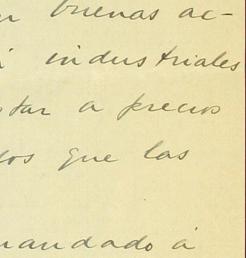 buenas ac-
industriales
tar a precios
los que las
mandado á